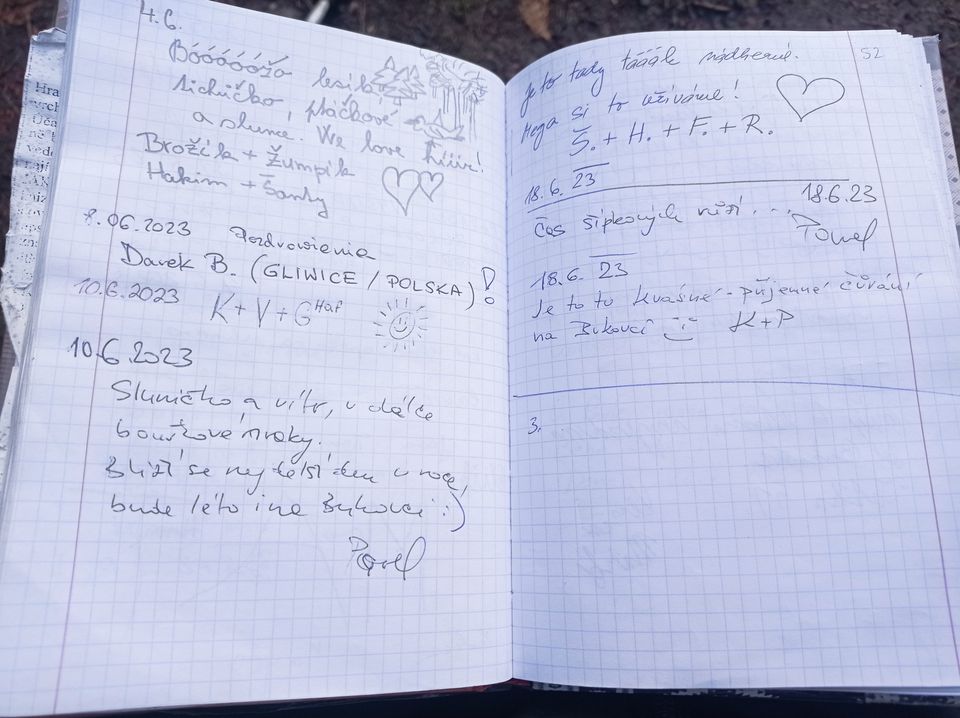 4.6.
Bóóóóóžo lesíků
tichúčko ptáčkové
a slunce. We love
Brožík + Žumpík
Hakim + Šanky
7.06.2023 Pozdrowienia
Darek B. (GLIWICE / POLSKA)!
10.6.2023 K+V+G Haf
10.6.2023
Sluníčko a vítr, v dálce
bouřkové mraky.
Blíží se nejdelší den v roce,
bude léto i na Bukovci :)
Pavel
52
Je to tady tááák nádherné.
Mega si to užíváme!
Š. + H. + F. + R.
18.6.23
18.6.23
Čas šípkových růží...
Pavel
18.6.23
Je to tu - příjemné čůrání
na Bukovci K+P
3.